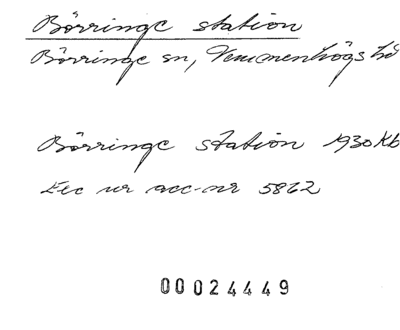 Börringe station
Börringe sn, Vemmenhögs hd
Börringe station 1930 Kb
Lec nr acc-nr 5862
00024449